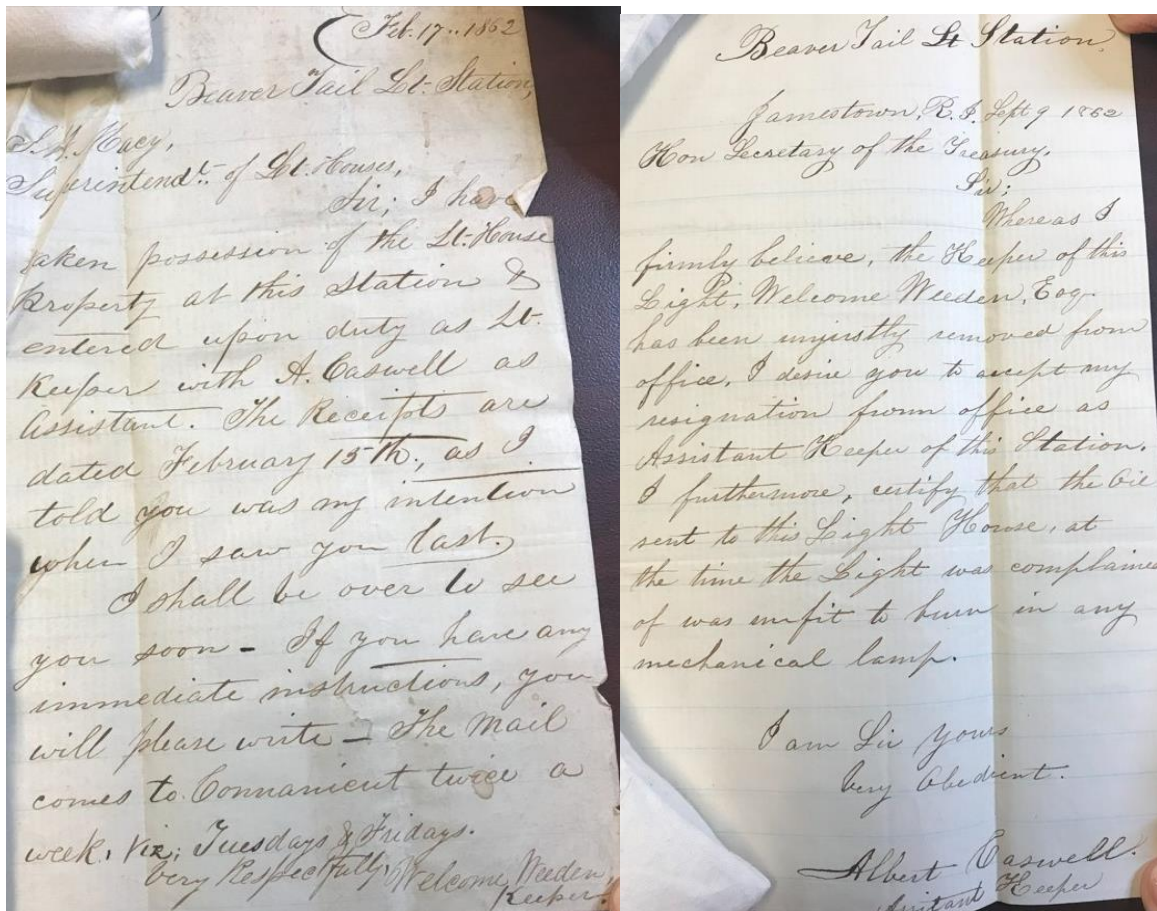 Feb. 17.. 1862
Beaver Tail Lt. Station,
Macy,
Superintendt. of Lt. Houses,
Sir; I have
taken possession of the Lt-House
property at this Station &
entered upon duty as Lt.
Keeper with A. Caswell as
Assistant. The Receipts are
dated February 15th, as I
told you was my intention
when I saw you last.
I shall be over to see
you soon - If you have any
immediate instructions, you
will please write - The mail
comes to Connanicut twice a
week, viz; Tuesdays & Fridays.
Very Respectfully, Welcome Weeden
Keeper.
Beaver Tail Lt Station.
Jamestown, R. I. Sept 9 1862
Hon Secretary of the Treasury,
Sir;
Whereas I
firmly believe, the Keeper of this
Light, Welcome Weeden, Esq.
has been unjustly removed from
office, I desire you to accept my
resignation from office as
Assistant Keeper of this Station.
I furthermore, certify that the Oil
sent to this Light House, at
the time the Light was complained
of was unfit to burn in any
mechanical lamp.
I am Sir yours
Very Obedient.
Albert Caswell.
Assistant Keeper